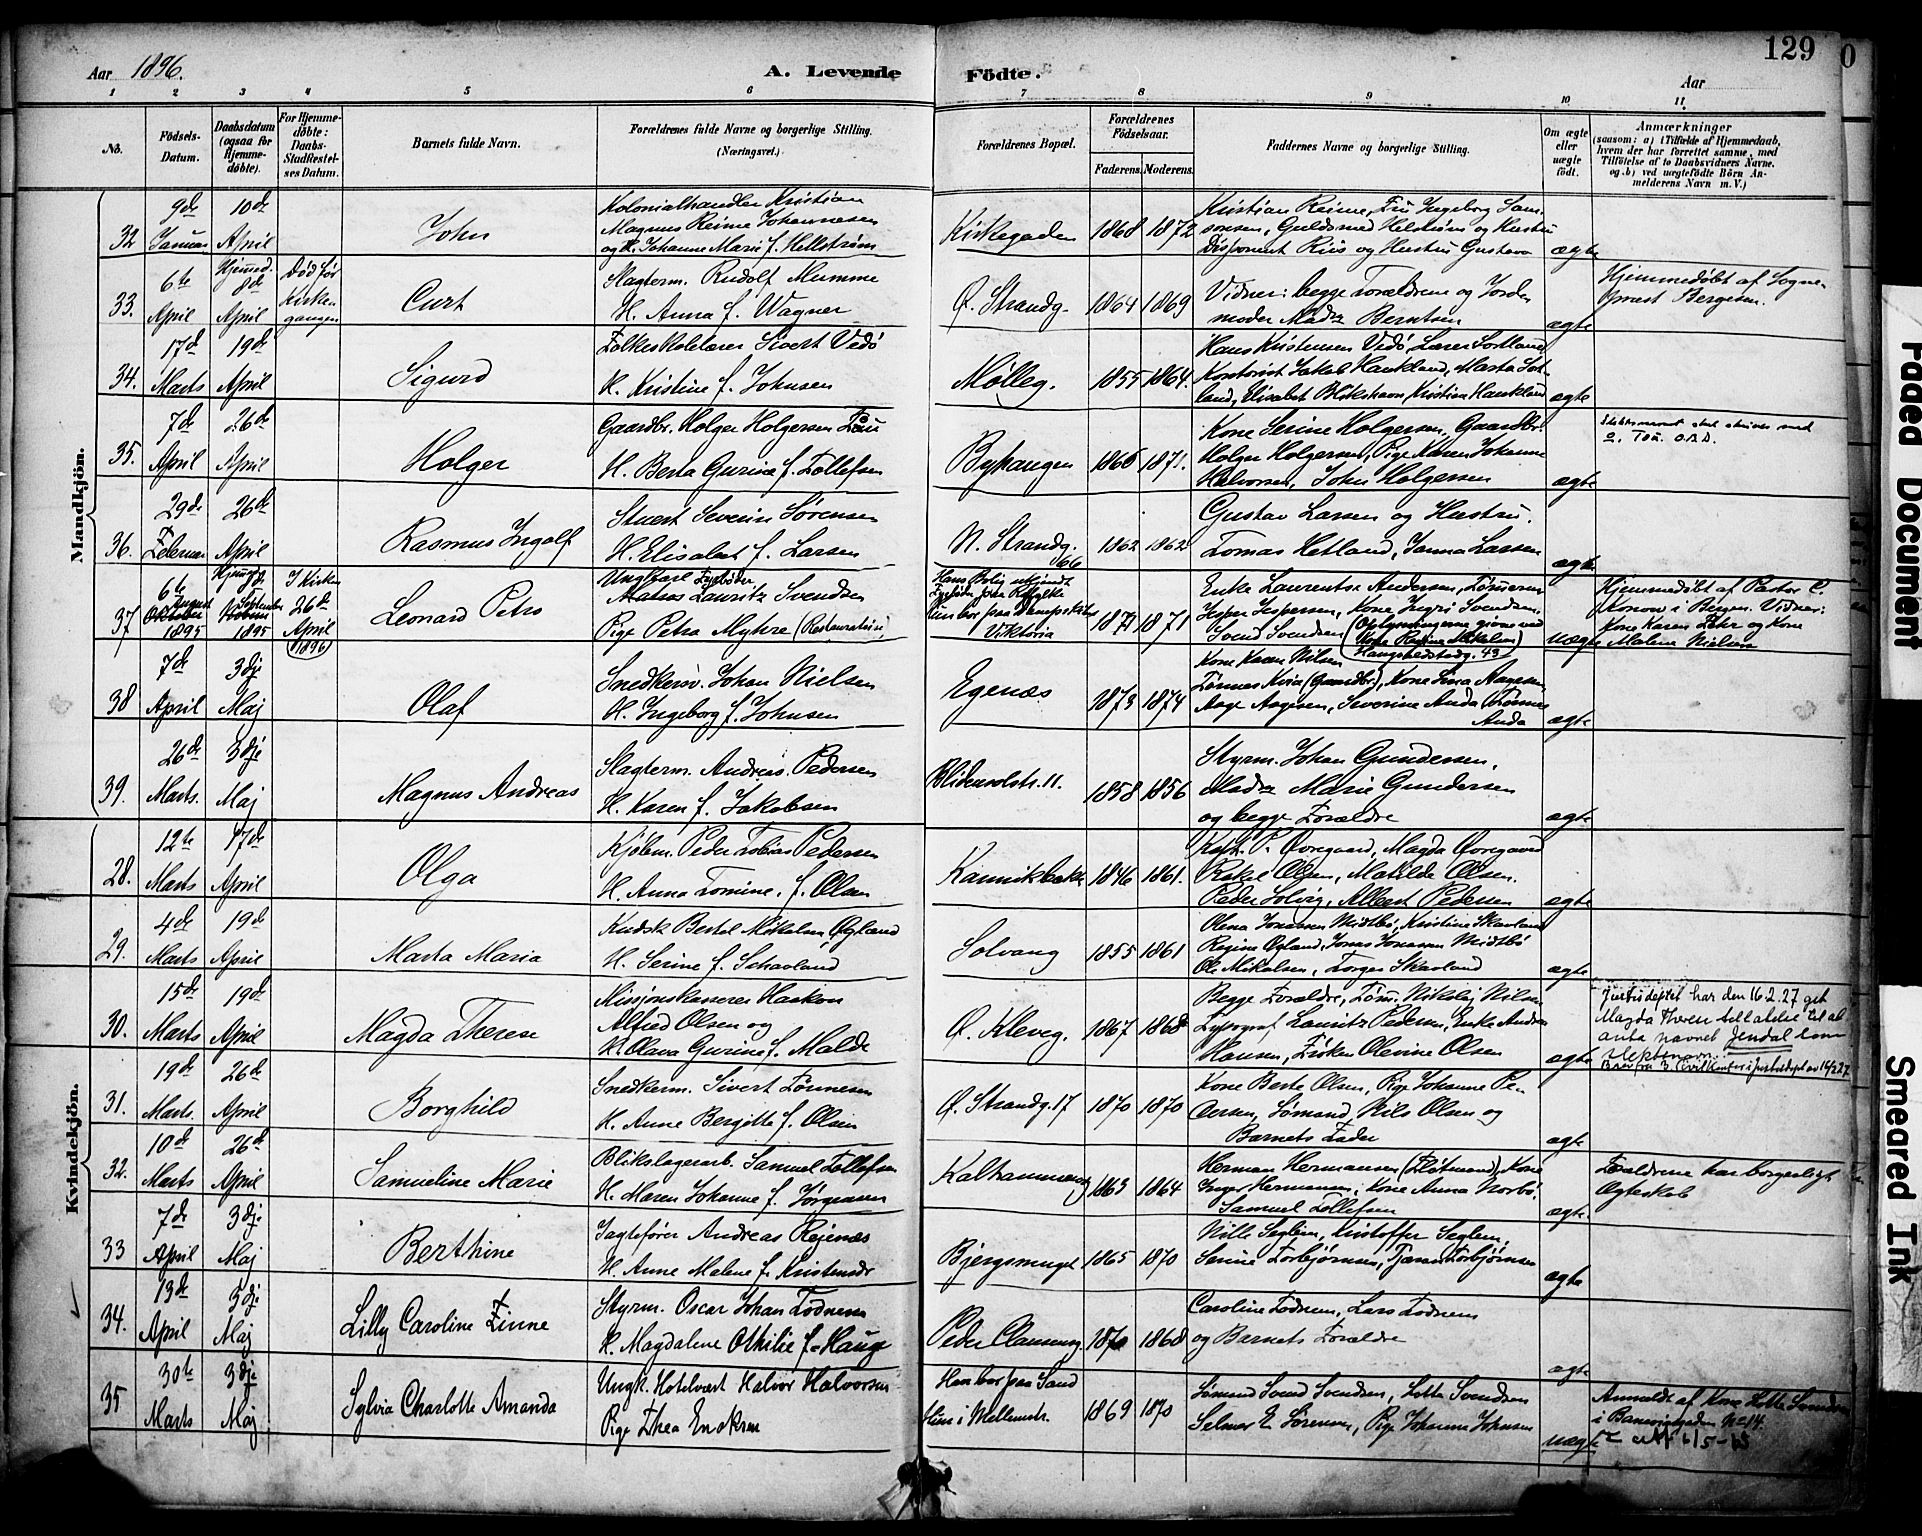 Aar 1896.
A. Levende Födte.
129
0
Aar
1 2 3 4 5 6 7 8 9 10 11
No.
Födsels-Datum.
Daabsdatum (ogsaa for Hjemme-döbte).
For Hjemme-döbte: Daabs-Stadfæstel-ses Datum.
Barnets fulde Navn.
Forældrenes fulde Navne og borgerlige Stilling. (Næringsvei.)
Forældrenes Bopæl.
Forældrenes Födselsaar.
Faderens. Moderens.
Faddernes Navne og borgerlige Stilling.
Om ægte eller uægte födt.
Anmærkninger
(saasom: a) i Tilfælde af Hjemmedaab, hvem der har forrettet samme, med Tilföielse af to Daabsvidners Navne. og b) ved uægtefödte Börn An-melderens Navn m. V.)
Mandkjön.
32 9de Januar 10de April
John
Kolonialhandler Kristian
Magnus Reime Johannesen
og H. Johanne Marie f. Hellstrøm
Kirkegaden 1868 1872
Kristian Reime, Fru Ingeborg
Guldsmed Helstrøm og Hustru
Disponent Riis og Hustru Gustava
ægte
33. 6te April Hjemmed. 8de April Död før Kirkegangen
Curt
Slagterm. Rudolf Mumme
H. Anna f. Wagner
Ø. Strandg. 1864 1869
Vidner: begge Forældrene og Jorde-
moder Mad. Berntsen
ægte
Hjemmedöbt af Sogne-
prest Bergesen.
34. 17de Marts 19de April
Sigurd
Folkeskolelærer Sivert Vedö
H. Kristine f. Johnsen
Mølleg. 1855 1864.
Hans Kristensen Vedö, Lærer
Kontorist Jakob Haukland, Marta
Elisabet Blikshavn, Kristian Haukland
ægte
35. 7de April 26de April
Holger
Gaardbr. Holger Holgersen Tau
H. Berta Gurine f. Tollefsen
Byhaugen 1865 1871.
Kone Serine Holgersen, Gaardbr.
Holger Holgersen, Pige Karen Johanne
Halvorsen, John Holgersen
ægte
36. 29de Februar 26de April
Rasmus Ingolf
Stuert Severin Sörensen
H. Elisabet f. Larsen
N. Strandg. 66 1862 1862
Gustav Larsen og Hustru.
Tomas Hetland, Janna Larsen
ægte
37 6te August 1895 Hjemmed. September 1895 I Kirken 26de April (1896)
Leonard Petro
Ungkarl Fyrböder
Lauritz Svendsen
Pige Petra Myhre
Hans Bolig ukjendt
Hun bor paa Dampskibet
Viktoria
1871 1871
Enke Laurentse Andersen, Tømmerm.
Jesper Jespersen, Kone Ingri Svendsen.
Svend Svendsen (Oplysningerne givne ved
Kone Mikelsen
43
uægte
Hjemmedöbt af Pastor C.
Konow i Bergen. Vidner:
Kone Karen og Kone
Malene Nielsen
38 7de April 3dje Maj
Olaf
Snedkersv. Johan Nielsen
H. Ingeborg f. Johnsen
Egenæs 1873 1874
Kone Karen Nilsen
(Gaardbr.), Kone Sina Aagesen
Aage Aagesen, Severine Anda
Anda
ægte
39. 26de Marts. 3dje Maj
Magnus Andreas
Slagterm. Andreas Pedersen
H. Karen f. Jakobsen
Blidensolstr. 11. 1858 1856
Styrm. Johan Gundersen,
Mad. Marie Gundersen
og begge Forældre
ægte
Kvindekjön.
28. 12te Marts 17de April
Olga
Kjöbm. Peder Tobias Pedersen
H. Anna Tomine, f. Olsen
Kannikbakke 1846 1861.
P. Övregaard, Magda Övregaard
Olsen, Matilde Olsen.
Peder Solvig, Albert Pedersen
ægte
29. 4de Marts 19de April
Marta Maria
Kudsk Bertel Mikalsen Øgland
H. Serine f. Schavland
Solvang 1855 1861
Olena Jonassen Midtbö, Kristine Skavland
Regine Øgland, Jonas Jonassen Midtbö
Ole Mikalsen, Torger Skavland
ægte
30. 15de Marts 19de April
Magda Therese
Missionskasserer Haakon
Alfred Olsen og
H. Olava Gurine f. Malde
Ø. Kleveg. 1867 1868
Begge Forældre, Nikolaj Nilsen
Typograf Lauritz Pedersen, Enke Andrea
Hansen, Frøken Olevine Olsen
ægte
Justisdeptet har den 16.2.27 git
Magda Therese tillatelse til at
anta navnet Jendal som
slektsnavn.
31. 19de Marts. 26de April
Borghild
Snedkerm. Sivert Tönnesen
H. Anne Bergitte f. Olsen
Ø. Strandg. 17 1870 1870
Kone Berte Olsen, Pige Johanne Pe-
dersen, Sömand Nils Olsen og
Barnets Fader
ægte
32. 10de Marts 26de April
Samueline Marie
Blikslagerarb. Samuel Tollefsen
H. Maren Johanne f. Jørgensen
Kalhammeren 1863 1864
Herman Hermansen (Flötmand), Kone
Inger Hermansen, Kone Anna Norbö.
Samuel Tollefsen
ægte.
Forældrene har borgerligt
Ægteskab
33 7de April 3dje Maj
Berthine
Jagtefører Andreas Rejenæs
H. Anne Malene f. Kristensdr
Bjergsmuget 1865 1870
Nille Seglem, Kristoffer Seglem,
Serine Torbjørnsen, Torbjørnsen
ægte
34. 13de April 3dje Maj
Lilly Caroline Finne
Styrm. Oscar Johan Todnem
H. Magdalene Othilie f. Hauge
Peder Clausensg. 1870 1868
Caroline Todnem, Lars Todnem
og Barnets Forældre
ægte
35 30te Marts 3dje Maj
Sylvia Charlotte Amanda
Ungk. Hotelvært Halvor Halvorsen
Pige Thea Enoksen
Han bor paa Sand
Hun i Mellemstr. 1869 1870
Sömand Svend Svendsen, Lotte Svendsen
Selmer E. Sørensen, Pige Johanne Johnsen
uægte
Anmeldt af Kone Lotte Svendsen
i Banevigsgaden No 14.
Faded Document
Smeared Ink